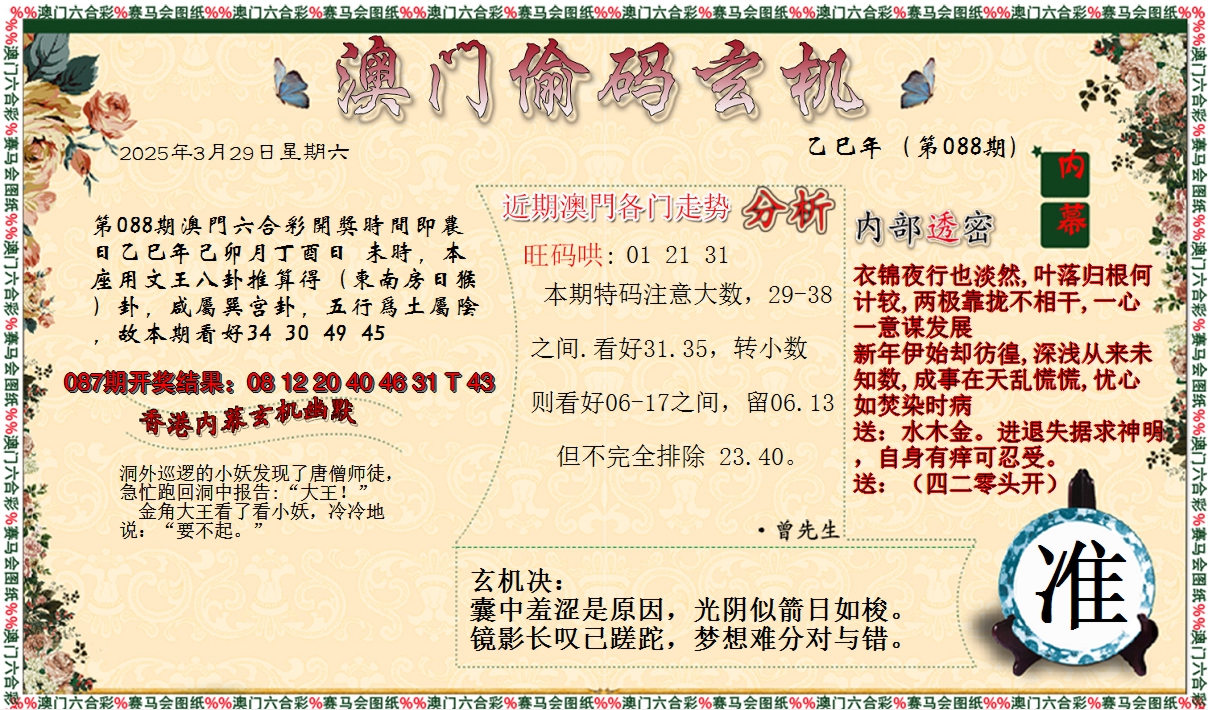 %%澳门六合彩%赛马会图纸%%澳门六合彩%赛马会图纸%%澳门六合彩%赛马会图纸%%澳门六合彩%赛马会图纸%%澳门六合彩%赛马会图纸%%澳门六合彩%赛马会图纸%%
澳门偷码玄机
2025年3月29日星期六
乙巳年（第088期）
内幕
第088期澳門六合彩開獎時間即農
日乙巳年己卯月丁酉日 未時，本
座用文王八卦推算得（東南房日猴
）卦，咸屬巽宫卦，五行爲土屬陰
，故本期看好34 30 49 45
087期开奖结果：08 12 20 40 46 31 T 43
香港内幕玄机幽默
洞外巡逻的小妖发现了唐僧师徒，
急忙跑回洞中报告:“大王！”
金角大王看了看小妖，冷冷地
说：“要不起。”
近期澳門各门走势 分析
旺码哄: 01 21 31
本期特码注意大数，29-38
之间.看好31.35，转小数
则看好06-17之间，留06.13
但不完全排除 23.40。
·曾先生
内部透密
衣锦夜行也淡然,叶落归根何
计较,两极靠拢不相干,一心
一意谋发展
新年伊始却彷徨,深浅从来未
知数,成事在天乱慌慌,忧心
如焚染时病
送：水木金。进退失据求神明
，自身有痒可忍受。
送：（四二零头开）
玄机决：
囊中羞涩是原因，光阴似箭日如梭。
镜影长叹已蹉跎，梦想难分对与错。
准
%%澳门六合彩%赛马会图纸%%澳门六合彩%赛马会图纸%%澳门六合彩%赛马会图纸%%澳门六合彩%赛马会图纸%%澳门六合彩%赛马会图纸%%澳门六合彩%赛马会图纸%%